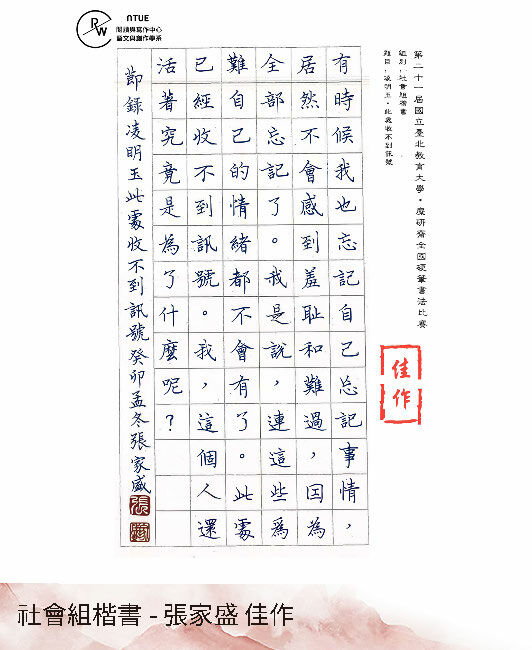 RW
NTUE
閱讀與寫作中心
語文與創作學系
第二十一屆國立臺北教育大學・麋研齋全國硬筆書法比賽
組別：社會組楷書
題目：凌明玉・此處收不到訊號
佳作
有時候我也忘記自己忘記事情，
居然不會感到羞恥和難過，因為
全部忘記了。我是說，連這些為
難自己的情緒都不會有了。此處
已經收不到訊號。我，這個人還
活著究竟是為了什麼呢？
節錄凌明玉此處收不到訊號癸卯孟冬張家盛
社會組楷書 - 張家盛 佳作